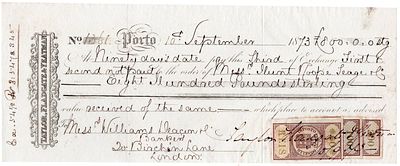 No Porto 10th September 1873 £800.0.0 Stg
At Ninety days date pay this Third of Exchange First &
Second not paid to the order of Messrs Hunt Roope Teage &Co
Eight Hundred Pounds sterling
value received of the same which place to account as advised
Messrs Williams Deacon &Co
Bankers
20 Birchin Lane
London
Taylor
TAYLOR, FLADGATE & YEATMAN